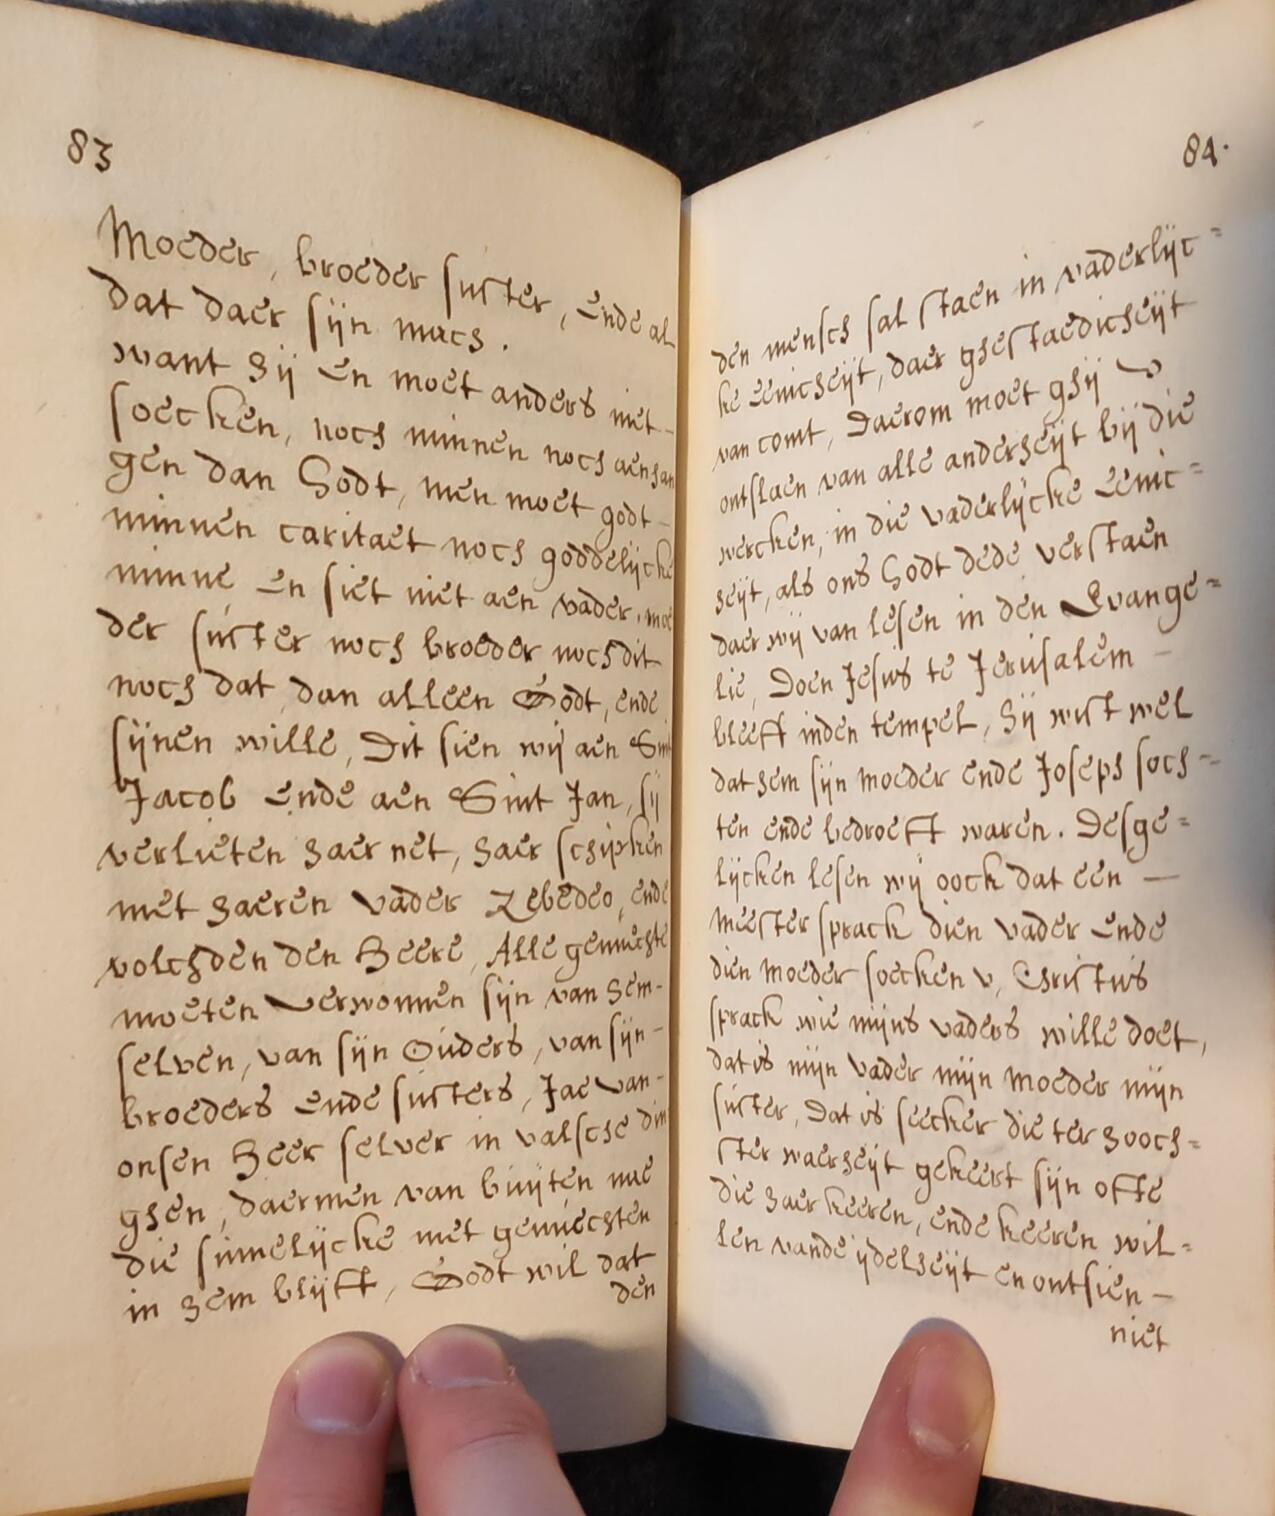 83
Moeder, broeder suster, ende al
dat daer sijn mach.
want hij en moet anders niet-
soecken, noch minnen noch aenhan
gen dan Godt, men moet godt-
minnen caritaet noch goddelijcke
minne en siet niet aen vader, moe
der suster noch broeder noch dit
noch dat dan alleen Godt, ende
sijnen wille, Dit sien wij aen Sint
Jacob ende aen Sint Jan, sij
verlieten haer net, haer schipken
met haeren vader Zebedeo, ende
volchden den Heere, Alle genuechte
moeten verwonnen sijn van hem-
selven, van sijn Ouders, van sijn-
broeders ende susters, Jae van-
onsen Heer selver in valsche din
ghen, daermen van buijten mee
die sinnelijcke met genuechten
in hem blijft, Godt wil dat
den
84.
den mensch sal staen in vaderlijc=
ke eenicheijt, daer ghestaedicheijt
van comt, Daerom moet ghij v
ontslaen van alle anderheijt bij die
wercken, in die vaderlijcke eenic=
heijt, als ons Godt dede verstaen
daer wij van lesen in den Evange=
lie, Doen Jesus te Jerusalem -
bleeft inden tempel, hij wist wel
dat hem sijn moeder ende Joseph soch=
ten ende bedroeft waren. Desge=
lijcken lesen wij oock dat een -
meester sprack dien vader ende
dien moeder soecken v, Christus
sprack wie mijns vaders wille doet,
dat is mijn vader mijn moeder mijn
suster, Dat is seecker die ter hooch=
ster waerheijt gekeert sijn ofte
die haer keeren, ende keeren wil=
len vande ijdelheijt en ontsien -
niet